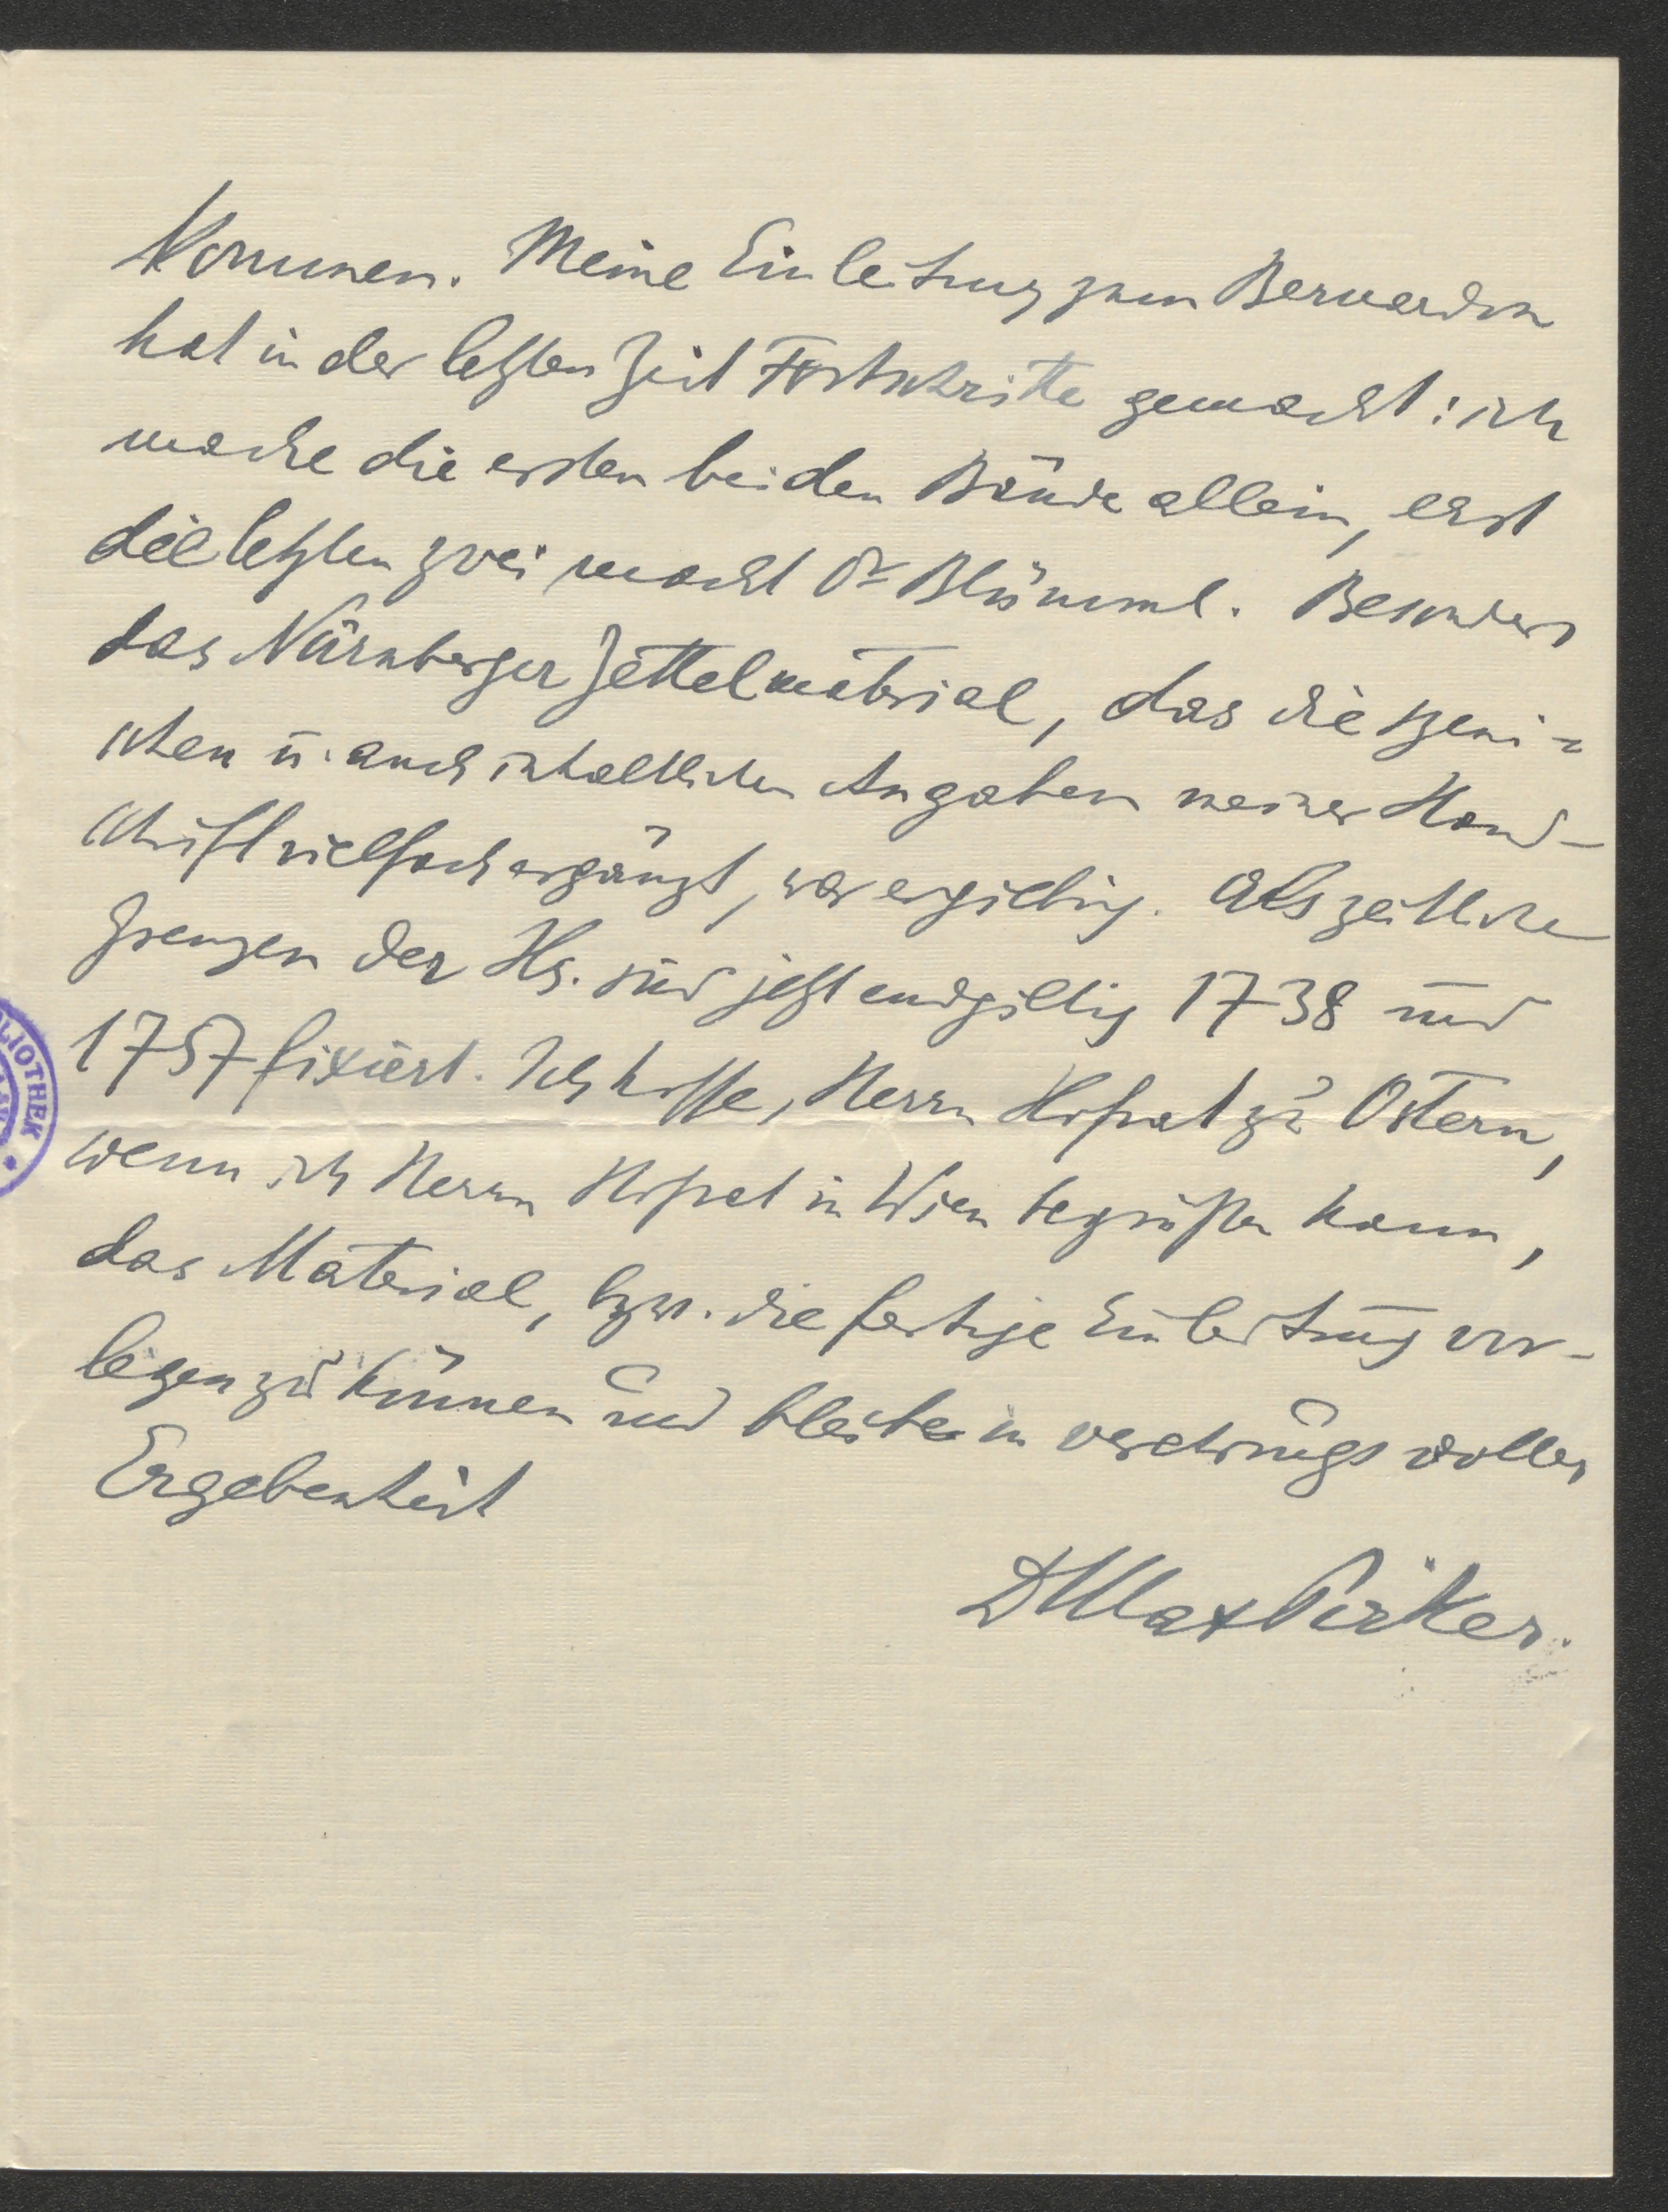 kommen. Meine Einleitung zum Bernardon
hat in der letzten Zeit Fortschritte gemacht: ich
mache die ersten beiden Bände allein, erst
die letzten zwei macht Dr Blümml. Besonders
das Nürnberger Zettelmaterial, das die szeni-
schen u. auch inhaltlichen Angaben meiner Hand-
schrift vielfach ergänzt, war ergiebig. Als zeitliche
Grenzen der Hs. sind jetzt endgiltig 1738 und
1757 fixiert. Ich hoffe, Herrn Hofrat zu Ostern,
wenn ich Herrn Hofrat in Wien begrüßen kann,
das Material, bzw. die fertige Einleitung vor-
legen zu können und bleibe in verehrungsvoller
Ergebenheit
Dr Max Pirker.
LIOTHEK